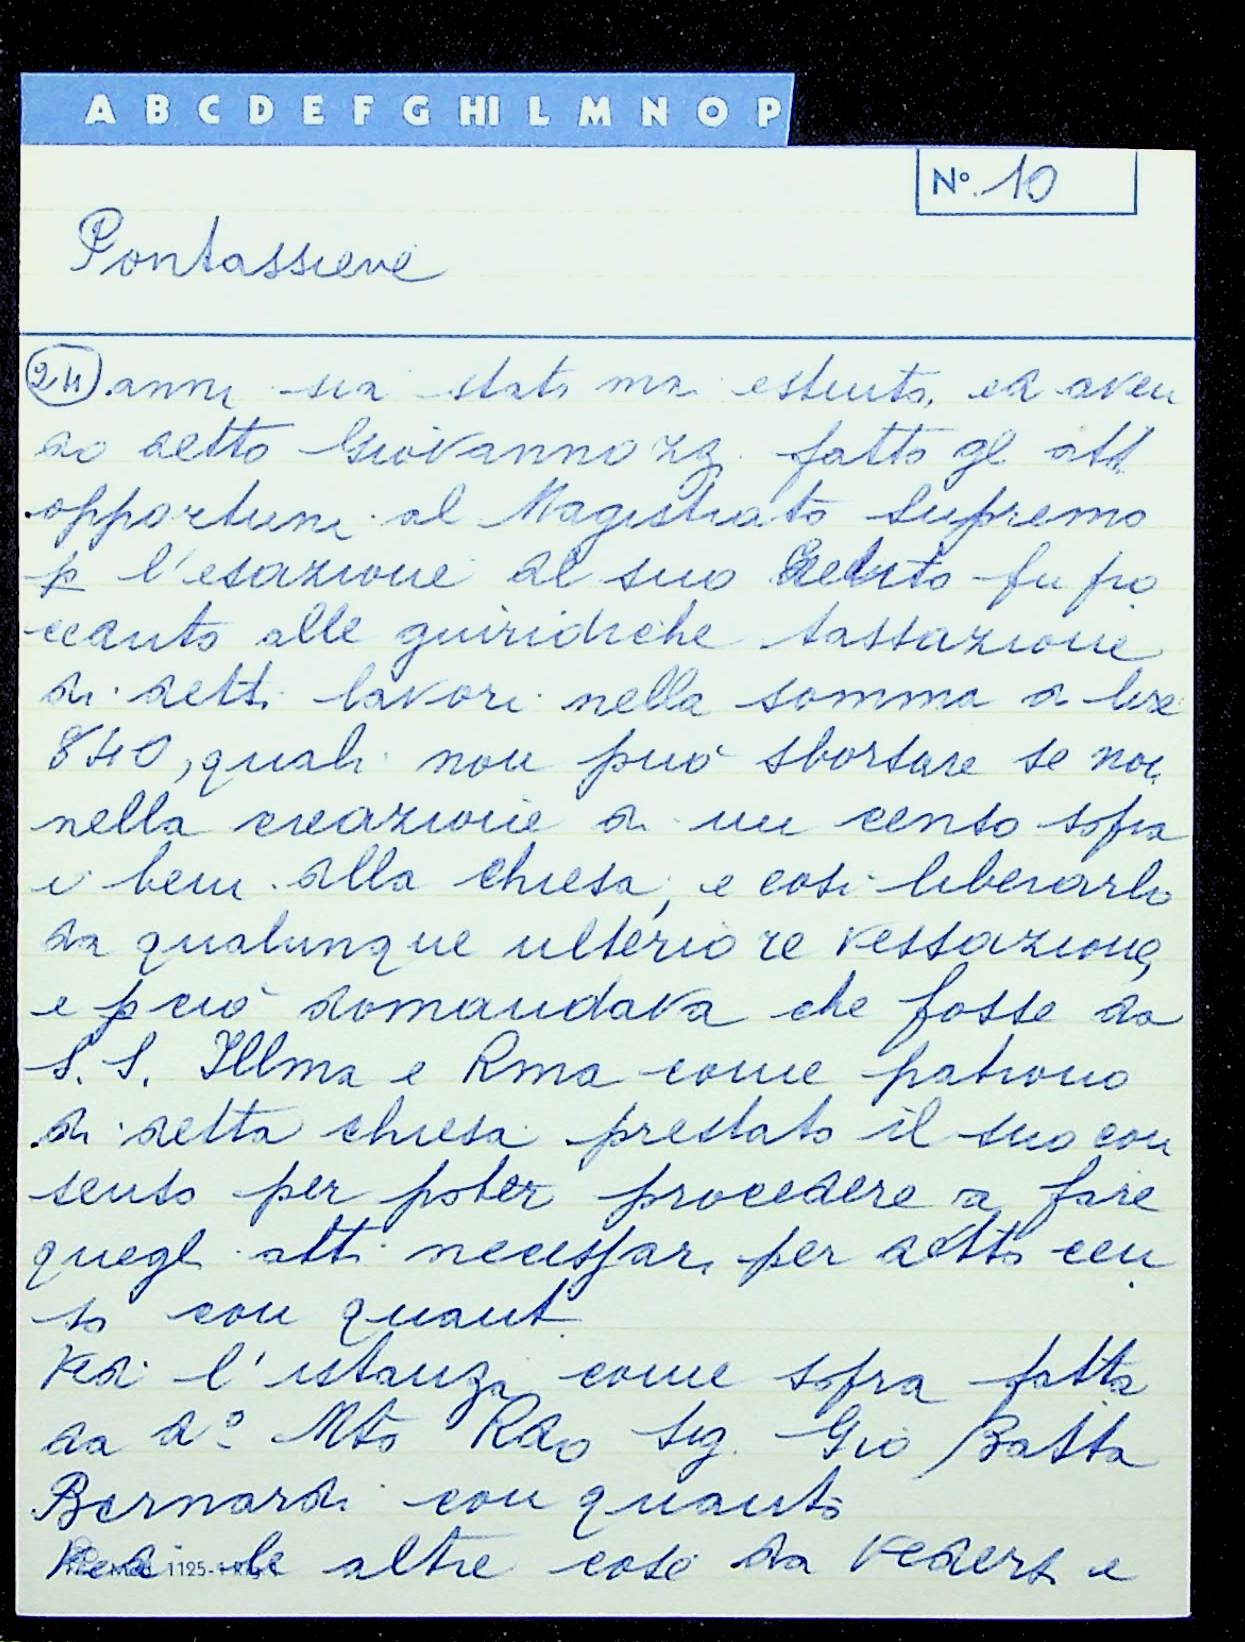 A B C D E F G HI L M N O P
No. 10
Pontassieve
24 anni sia stato mai estinto, ed aven
do detto Giovannozzi fatto gl atti
opportuni al Magistrato Supremo
p l'esazione del suo fu pro
alle guiridiche tassazione
di detti lavori nella somma di lire
840, quali non può sborsare se non
nella creazione di un censo sopra
i beni della chiesa, e così liberarlo
da qualunque ulteriore vessazione,
e p ciò domandava che fosse da
S. S. Illma e Rma come patrono
di detta chiesa prestato il suo con
senso per poter procedere a fare
quegli atti necessari per detto cen
so con quant
Vedi l'istanza come sopra fatta
da do Mto Rdo Sig. Gio Batta
Bernardi con quanto
Vedi le altre cose da vedersi e